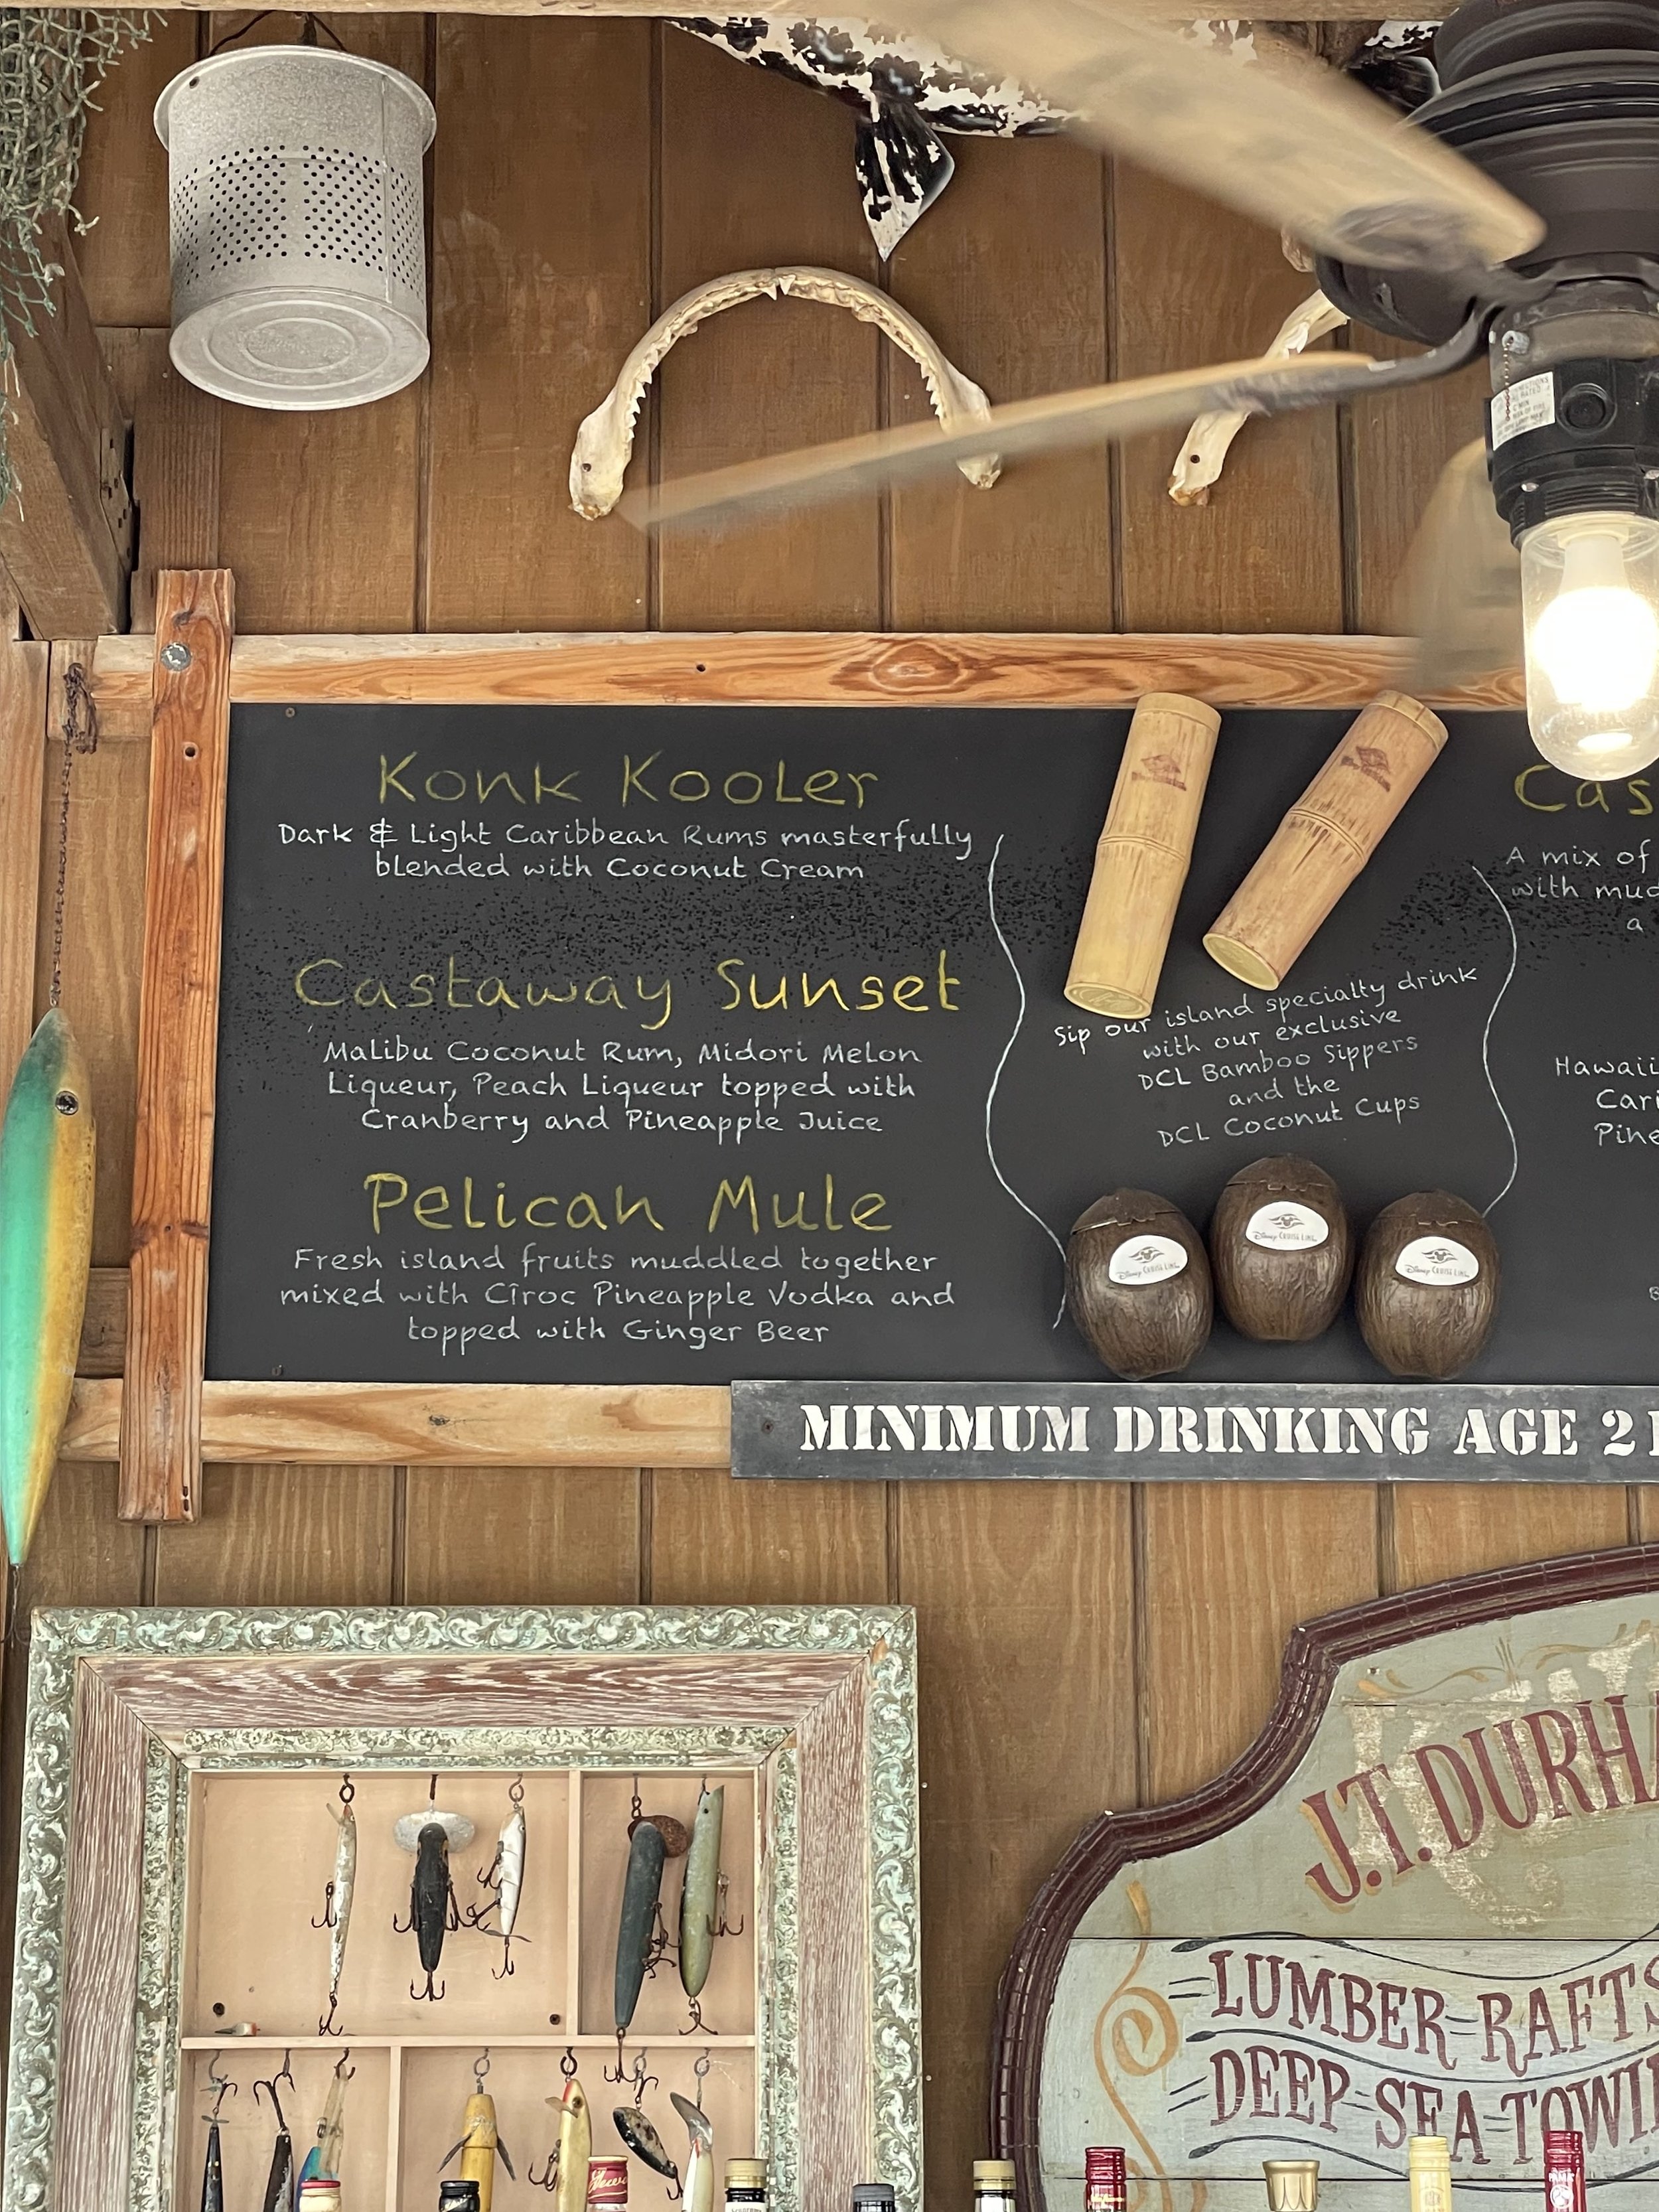 Konk Kooler
Dark & Light Caribbean Rums masterfully
blended with Coconut Cream
Castaway Sunset
Malibu Coconut Rum, Midori Melon
Liqueur, Peach Liqueur topped with
Cranberry and Pineapple Juice
Pelican Mule
Fresh island fruits muddled together
mixed with Cîroc Pineapple Vodka and
topped with Ginger Beer
Sip our island specialty drink
with our exclusive
DCL Bamboo Sippers
and the
DCL Coconut Cups
Disney CRUISE LINE
Disney CRUISE LINE
Disney CRUISE LINE
Cas
A mix of
with mud
a
Hawaii
Cari
Pine
MINIMUM DRINKING AGE 21
J.T. DURHA
LUMBER-RAFTS
DEEP-SEA-TOWI